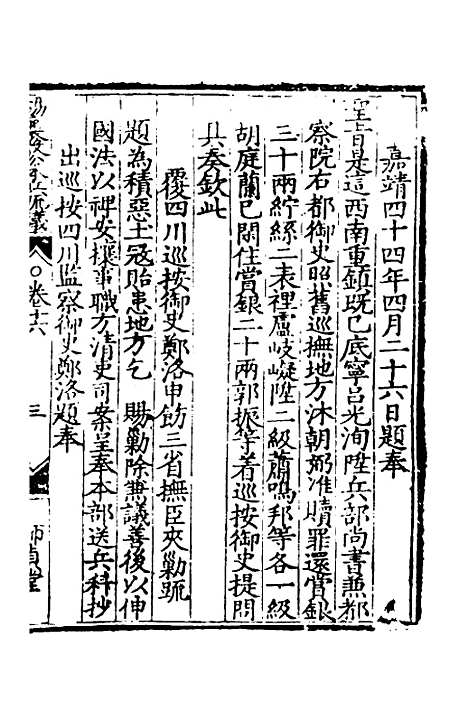 嘉靖四十四年四月二十六日題奉
聖旨是這西南重鎮既已底寧呂光洵陞兵部尚書兼都
察院右都御史照舊巡撫地方沐朝弼准贖罪還賞銀
三十兩紵絲二表裡盧岐嶷陞二級蕭鳴邦等各一級
胡庭蘭已閑住賞銀二十兩郭振等着巡按御史提問
具奏欽此
覆四川巡按御史鄭洛申飭三省撫臣夾勦疏
題為積惡土寇貽患地方乞 賜勦除兼議善後以伸
國法以裨安攘事職方清吏司案呈奉本部送兵科抄
出巡按四川監察御史鄭洛題奉
卷十六
三